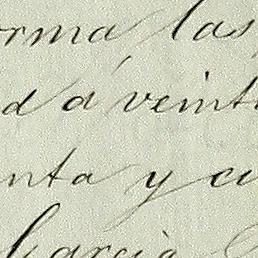 orma, las
d a veint
nta y ci
García